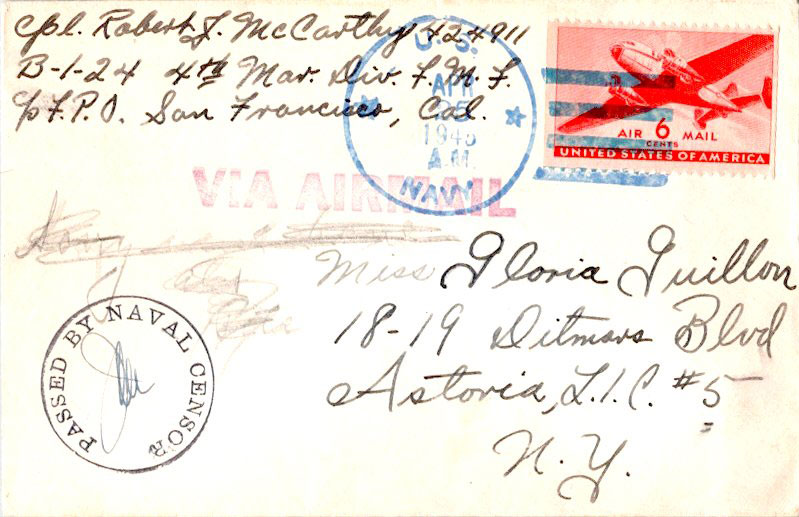 Cpl. Robert J. McCarthy 424911
B-1-24 4th Mar. Div. F.M.F.
℅ F.P.O. San Francisco, Cal.
U.S.
APR
25
1945
A.M.
NAVY
AIR 6 MAIL
CENTS
UNITED STATES OF AMERICA
VIA AIRMAIL
Miss Gloria Guillon
18-19 Ditmars Blvd
Astoria, L.I.C. #5
N.Y.
PASSED BY NAVAL CENSOR